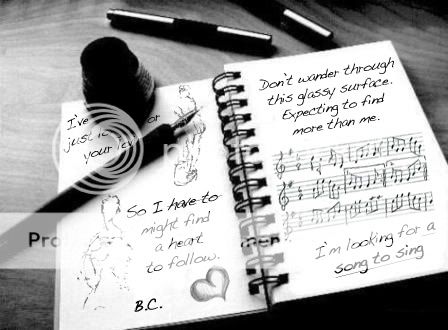 I've
just
your
So I have to
might find
a heart
to follow.
B.C.
Don't wander through
this glassy surface.
Expecting to find
more than me.
I'm looking for a
song to sing